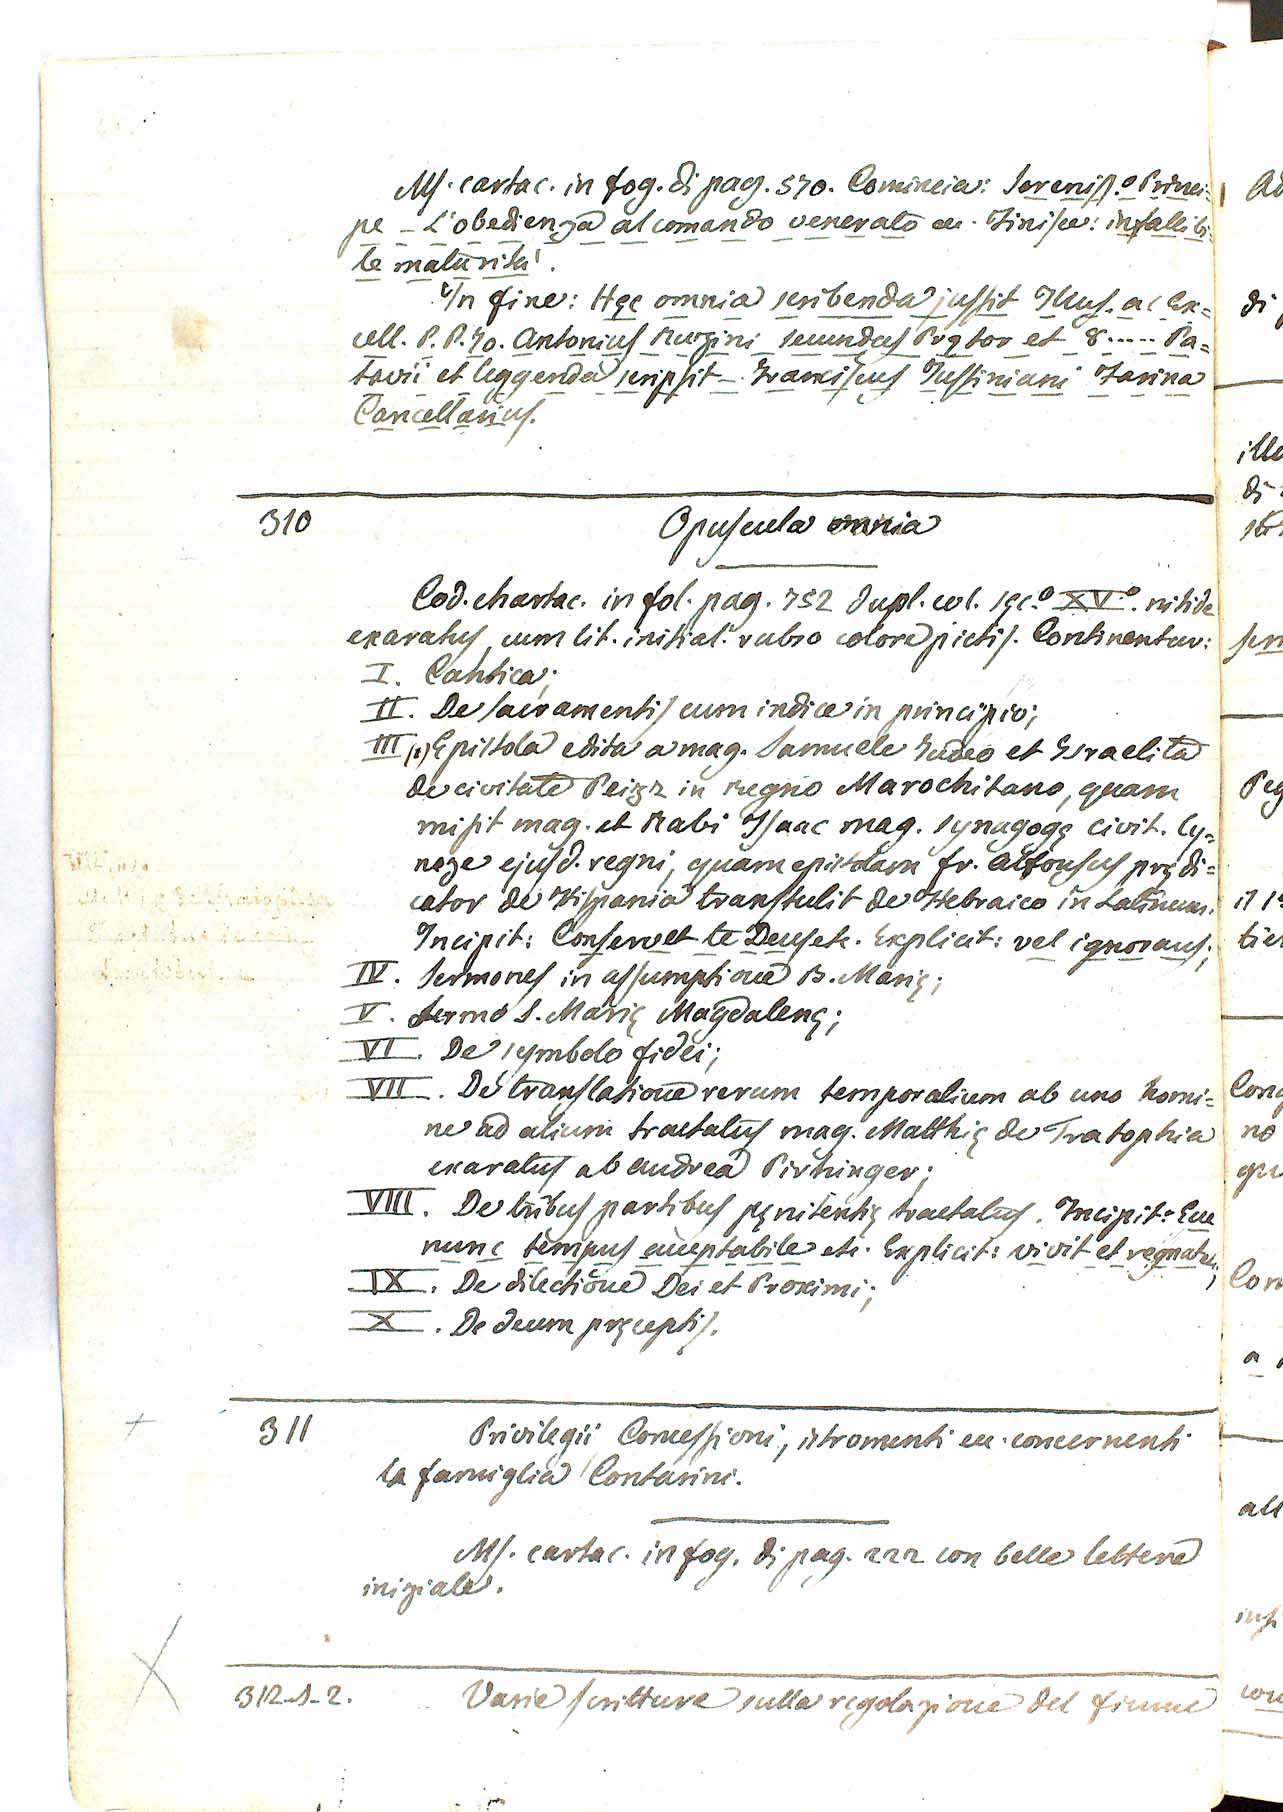 Ms. cartac. in fog. di pag. 570. Comincia: Sereniss.º Princi-
pe - L'obedienza al comando venerato ec. Finisce: infallibi-
le maturità.
In fine: Hęc omnia scribenda jussit Illus. ac Ex=
cell. P. P. Jo. Antonius Ruzini secundus Prętor et V..... Pa=
tavii et leggenda scripsit - Franciscus Justiniani Farina
Cancellarius.
310 Opuscula omnia
Cod. chartac. in fol. pag. 752 dupl. col. sęc.º XVº. nitide
exaratus, cum lit. initial. rubro colore pictis. Continentur:
I. Cantica;
II. De sacramentis cum indice in principio;
III (1) Epistola edita a mag. Samuele Judeo et Israelita
de civitate Feizz in regno Marochitano, quam
misit mag. et Rabi Isaac mag. synagogę civit. Cy=
neze ejusd. regni, quam epistolam fr. Alfonsus prędi=
cator de Hispania transtulit de Hebraico in Latinum.
Incipit: Conservet te Deus etc. Explicit: vel ignorans;
IV. Sermones in assumptione B. Marię;
V. Sermo S. Marię Magdalenę;
VI. De symbolo fidei;
VII. De translatione rerum temporalium ab uno homi=
ne ad alium tractatus mag. Matthię de Tratophia
exaratus ab Andrea Pirhinger;
VIII. De tribus partibus pęnitentię tractatus. Incipit: Ecce
nunc tempus acceptabile etc. Explicit: vivit et regnat;
IX. De dilectione Dei et Proximi;
X. De decem pręceptis.
311 Privilegii Concessioni, istromenti ec. concernenti
la famiglia Contarini.
Ms. cartac. in fog. di pag. 222 con belle lettere
iniziale.
312-1-2. Varie scritture sulla regolazione del fiume